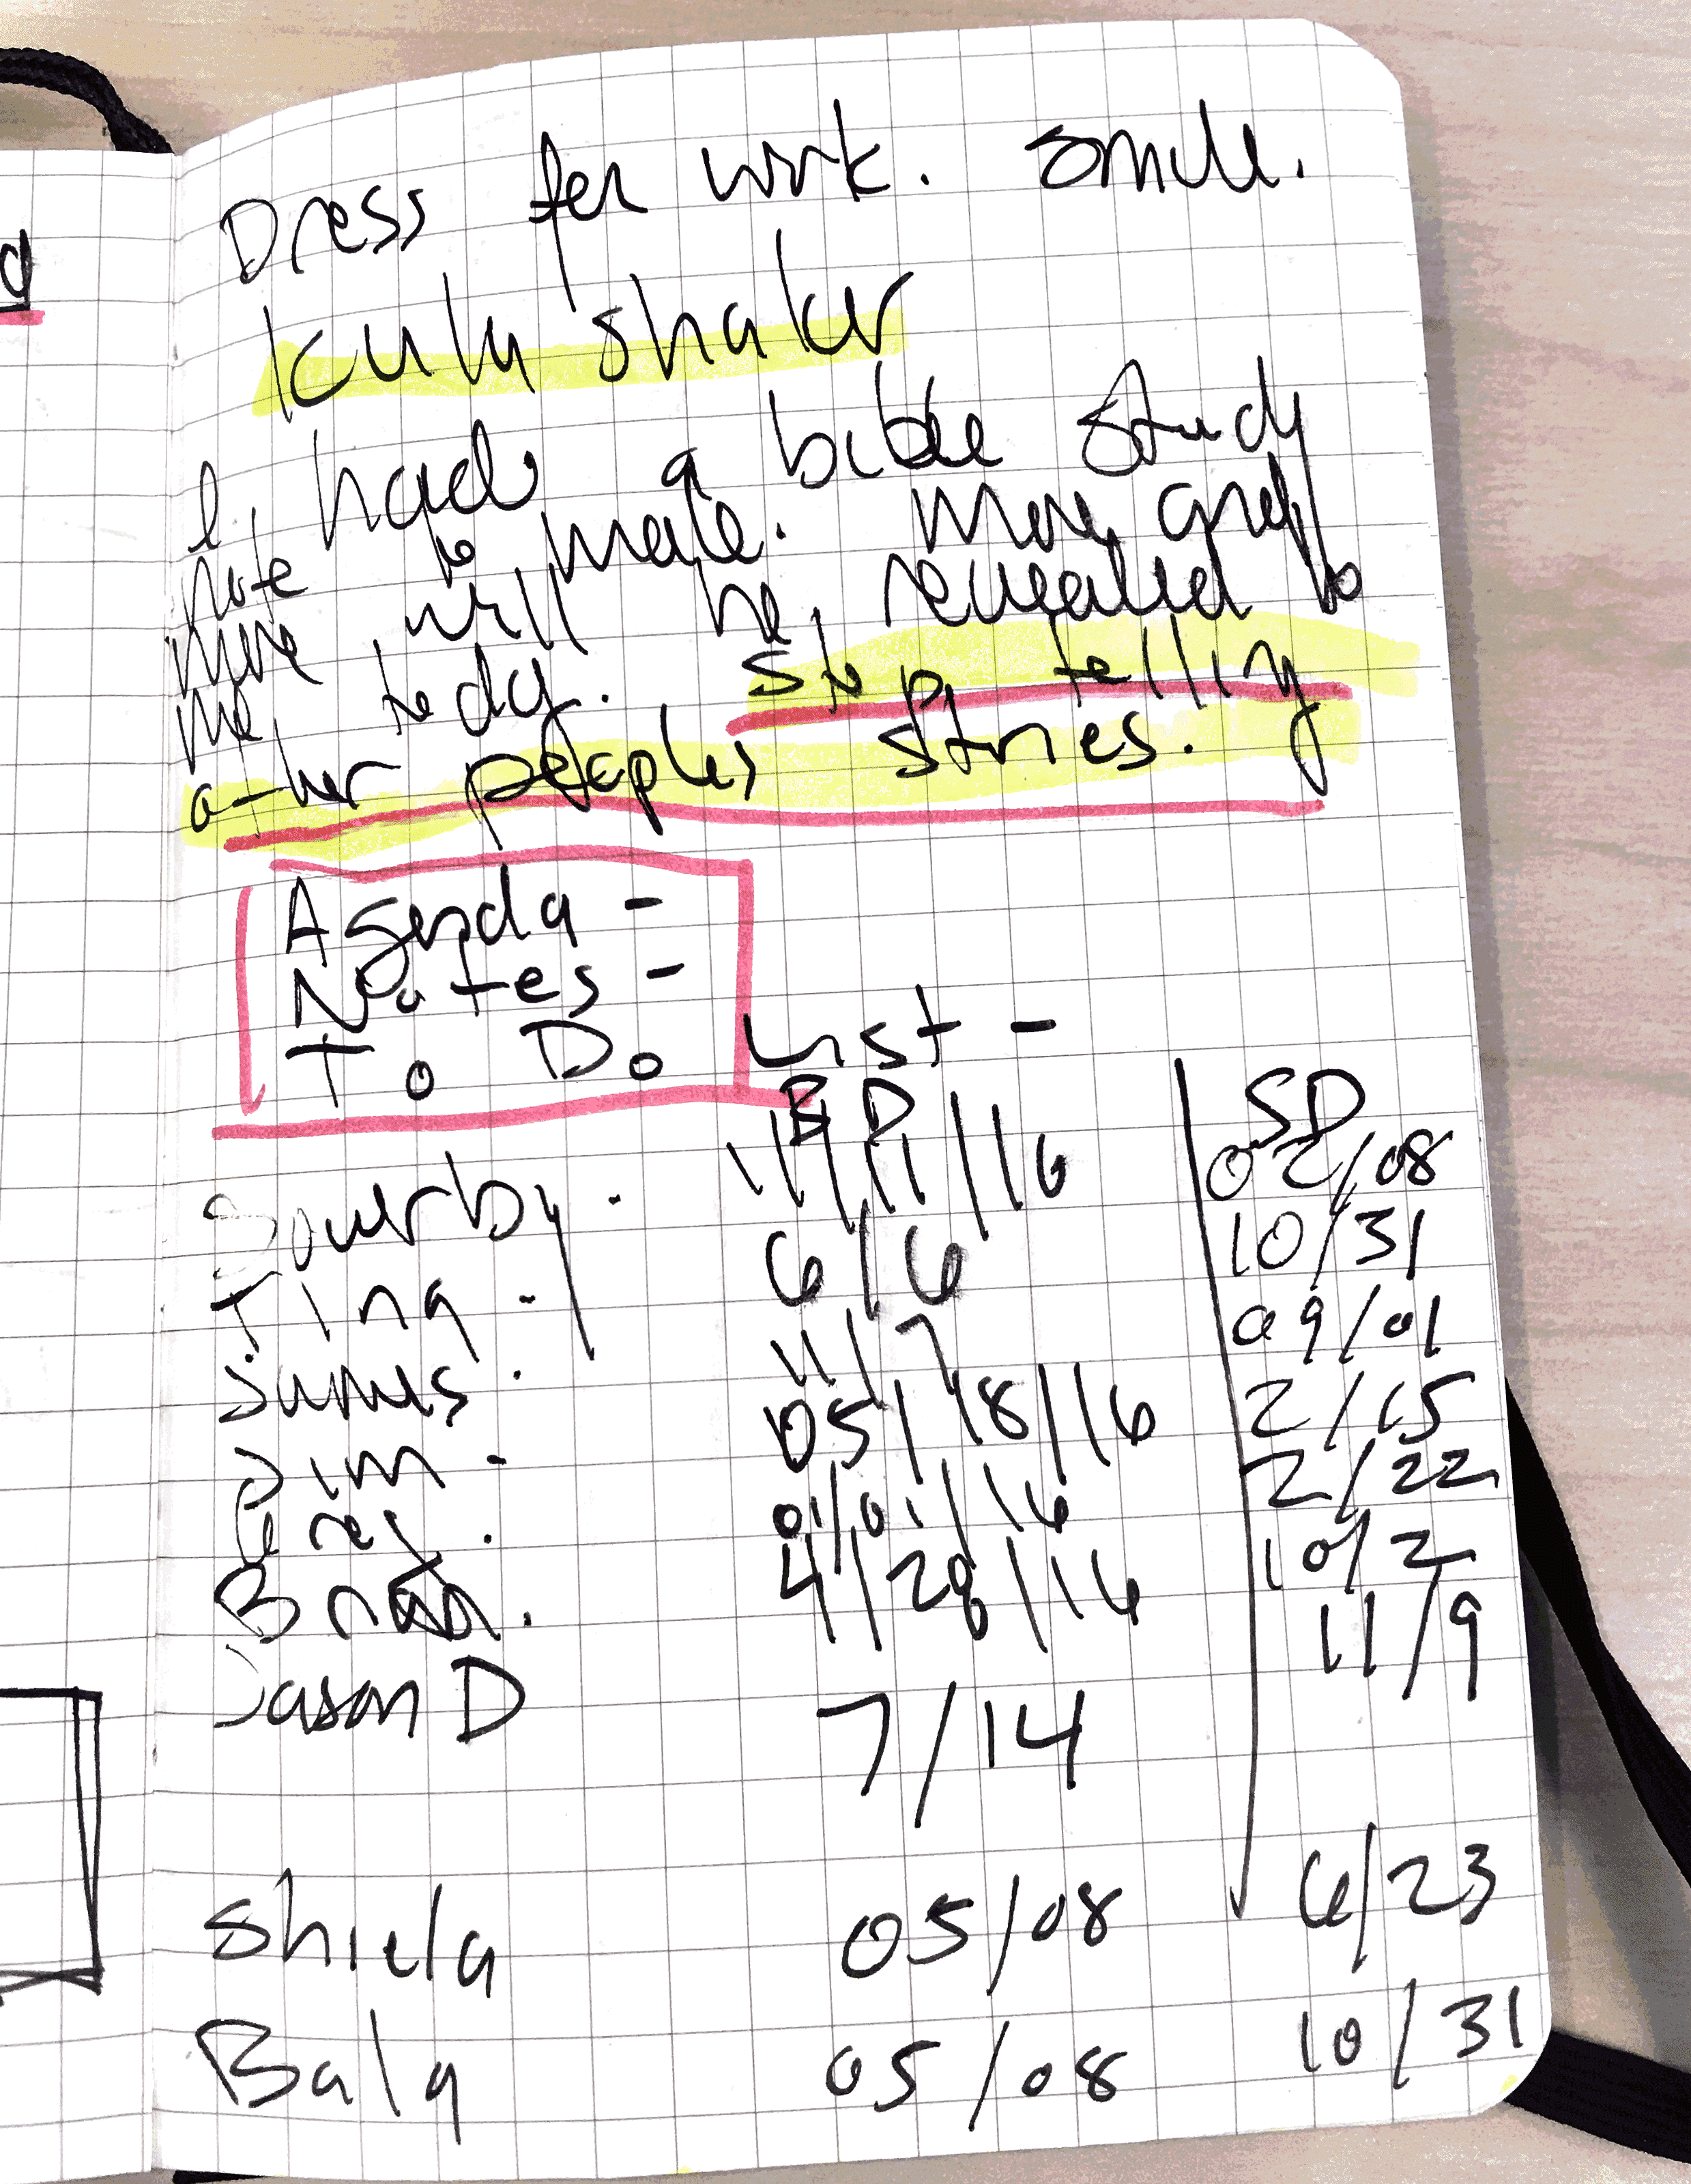 d
Dress for work. Smile.
Kula Shaker
I had a bible study
note to make. More and
more will be revealed to
me tody. Stop telling
other peoples stories.
Agenda -
Notes -
To Do List -
BD SD
Sowerby. 11/11/16 02/08
Tina - 6/6 10/31
11/7 09/01
Jim - 05/18/16 2/15
Greg. 01/01/16 2/22
Brian. 4/28/16 10/2
Jason D 7/14 11/9
Shiela 05/08 6/23
Bala 05/08 10/31